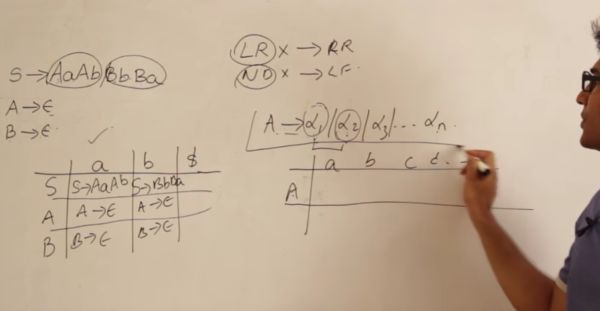 S → AaAb / BbBa
A → ε
B → ε
a b $
S S→AaAb S→BbBa
A A→ε A→ε
B B→ε B→ε
LR × → RR
ND × → LF
A → α1 / α2 / α3 / ... αn.
a b c d . .
A